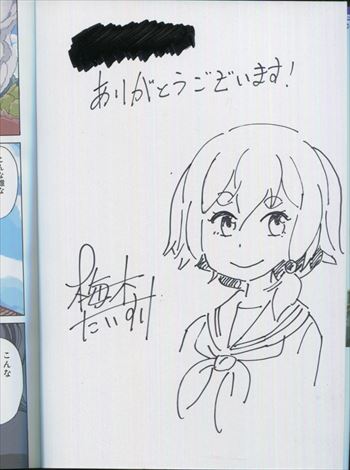 ありがとうございます!
梅木
たいすけ
こんな